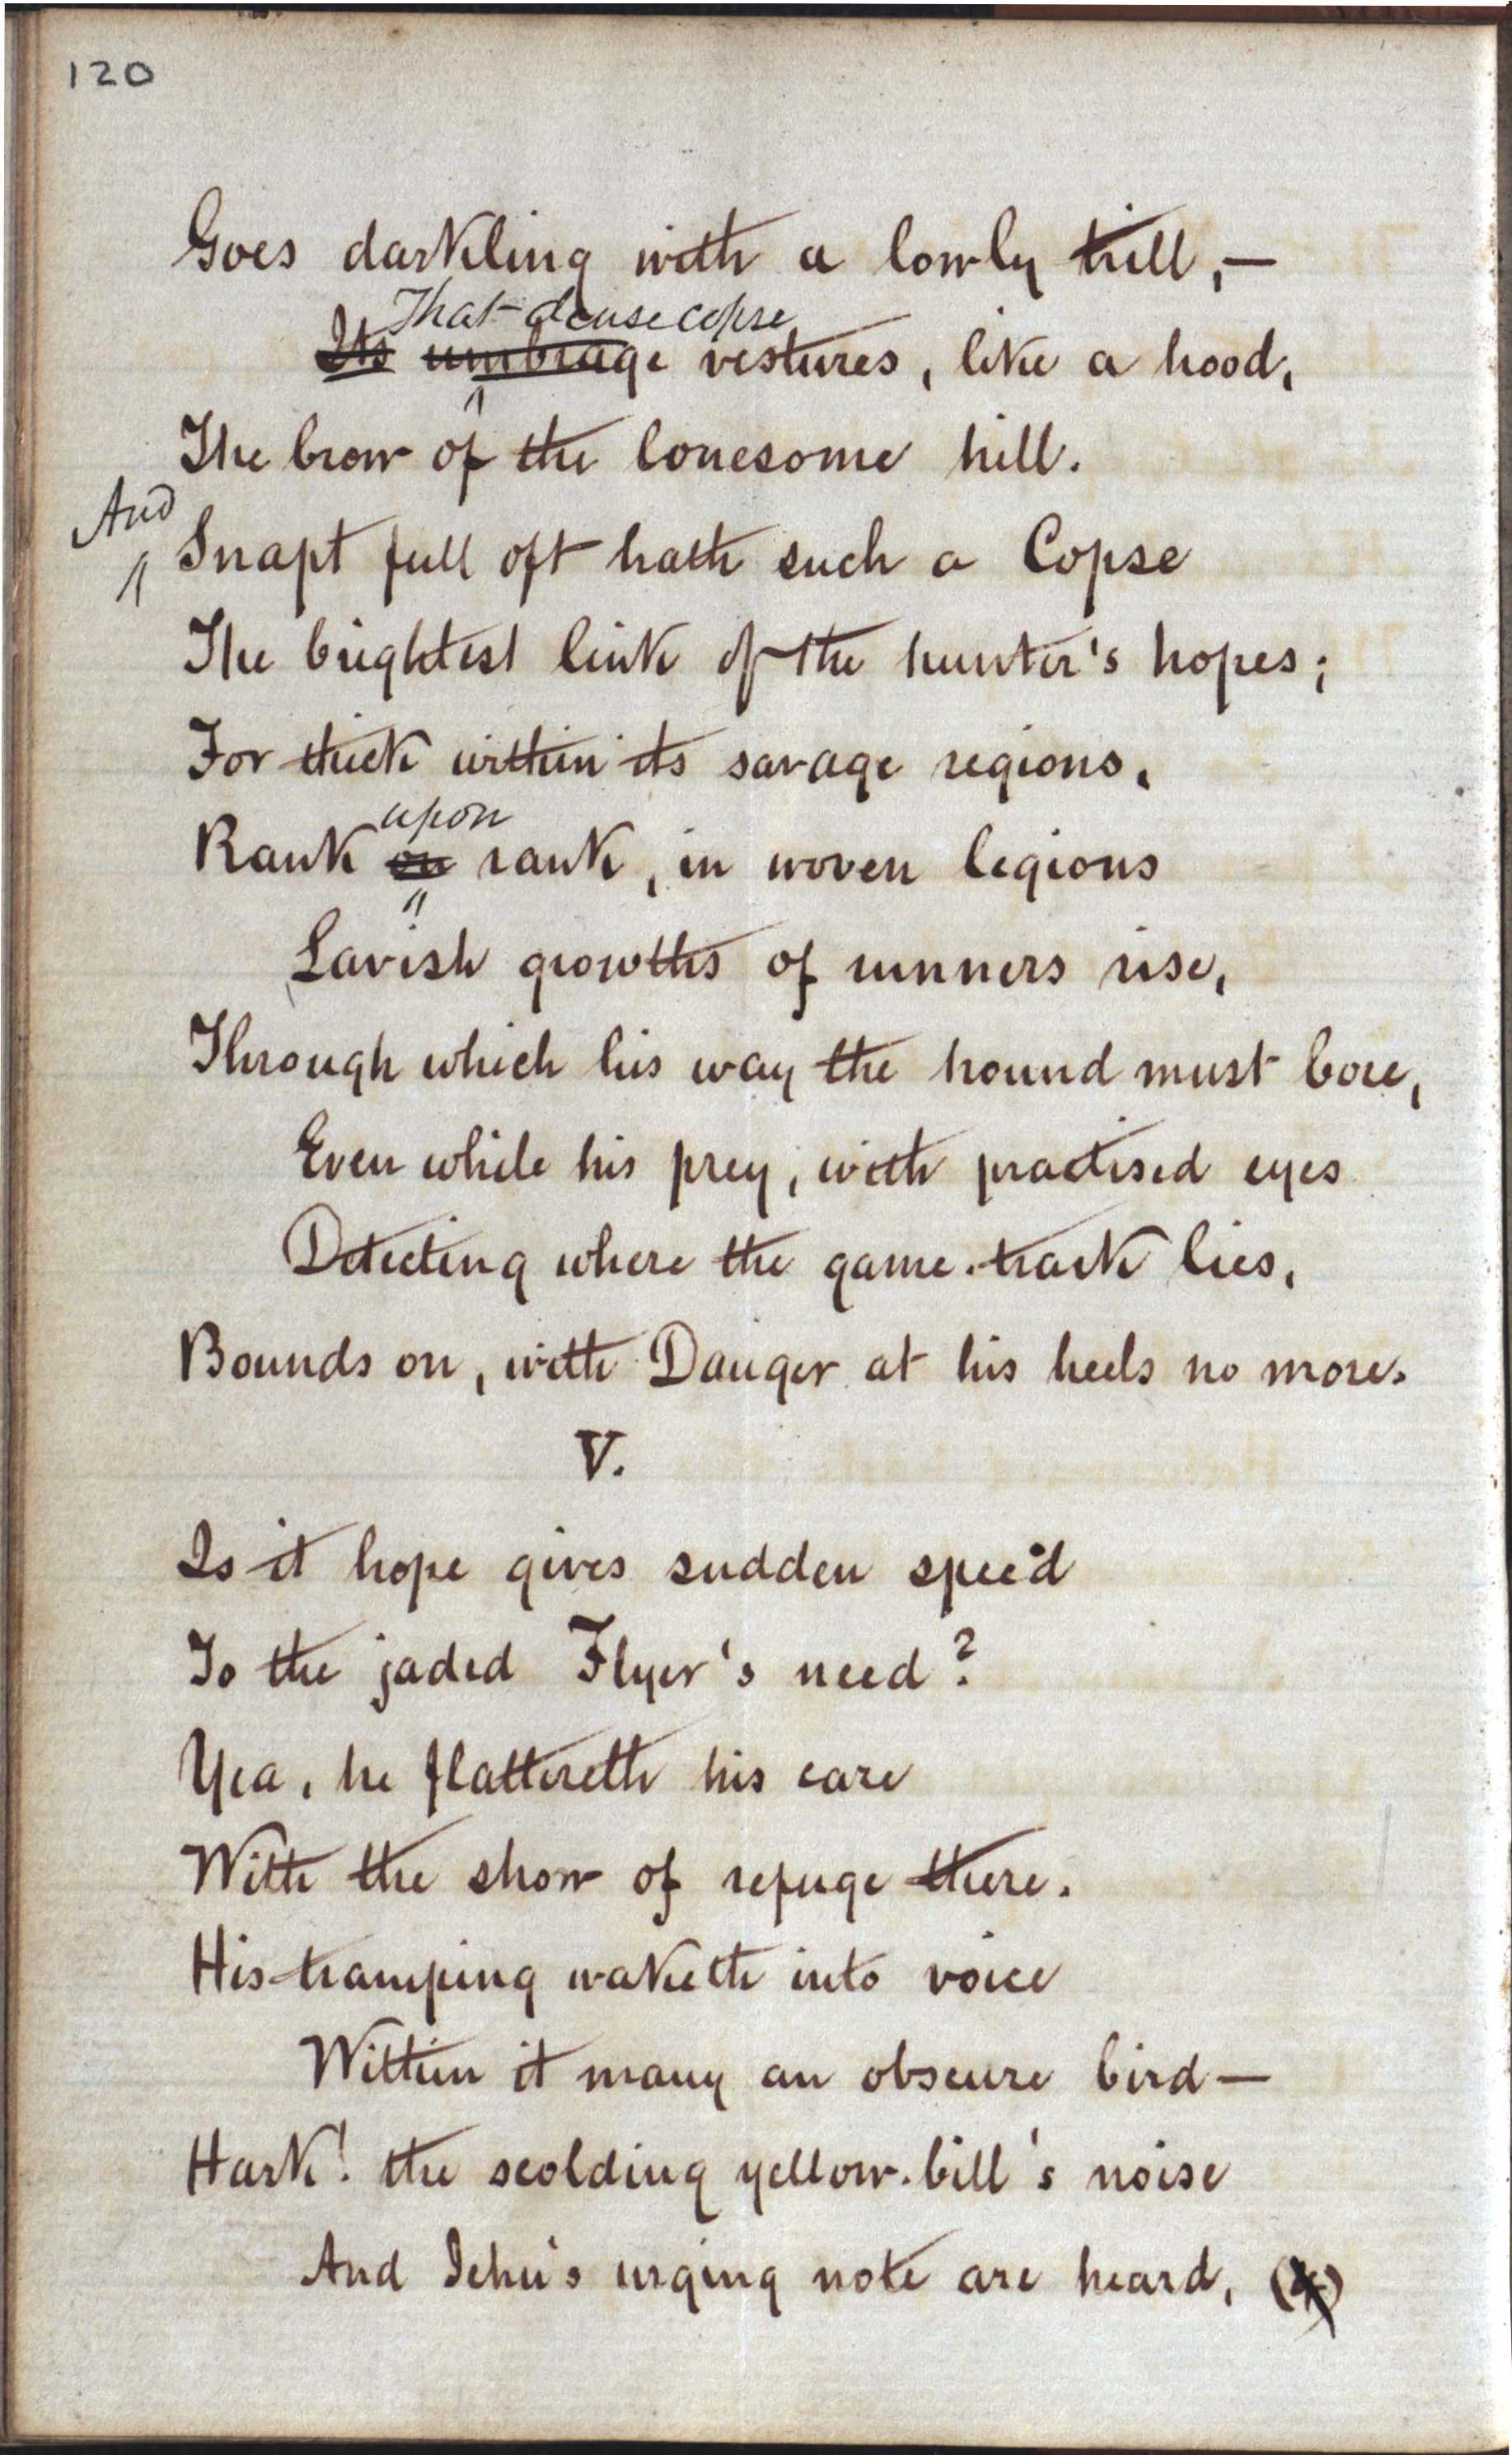 120
Goes darkling with a lowly trill, —
That dense copse
Its umbrage vestures, like a hood,
The brow of the lonesome hill.
And
Snapt full oft hath such a Copse
The brightest link of the hunter's hopes;
For thick within its savage regions,
upon
Rank on rank, in woven legions
Lavish growths of runners rise,
Through which his way the hound must bore,
Even while his prey, with practised eyes
Detecting where the game-track lies,
Bounds on, with Danger at his heels no more.
V.
Is it hope gives sudden speed
To the jaded Flyer's need?
Yea, he flattereth his care
With the show of refuge there.
His tramping waketh into voice
Within it many an obscure bird —
Hark! the scolding yellow-bill's noise
And Jehu's urging note are heard, (4)